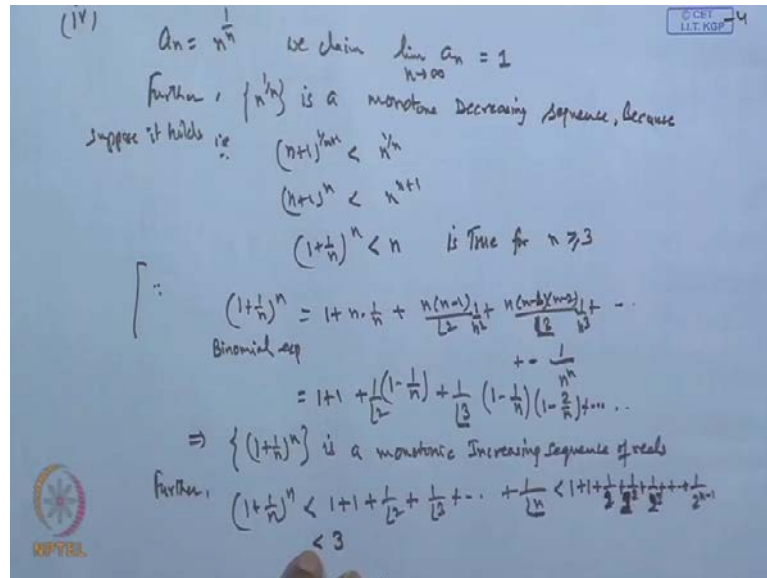 (iv)
© CET
I.I.T. KGP
-4
aₙ = n^{1/n} we claim lim_{n→∞} aₙ = 1
Further, {n^{1/n}} is a monotone Decreasing sequence, Because
suppose it holds ie (n+1)^{1/n+1} < n^{1/n}
(n+1)^n < n^{n+1}
(1+1/n)^n < n is True for n ≥ 3
[ ∵ (1+1/n)^n = 1 + n·1/n + n(n-1)/⌊2 1/n² + n(n-1)(n-2)/⌊3 1/n³ + - ··
Binomial exp + - 1/n^n
= 1+1 + 1/⌊2 (1-1/n) + 1/⌊3 (1-1/n)(1-2/n) + ··· ..
⇒ {(1+1/n)^n} is a monotonic Increasing sequence of reals
Further, (1+1/n)^n < 1+1+1/⌊2+1/⌊3+-·· +1/⌊n < 1+1+1/2+1/2²+1/2³+-+1/2^{n-1}
< 3
NPTEL